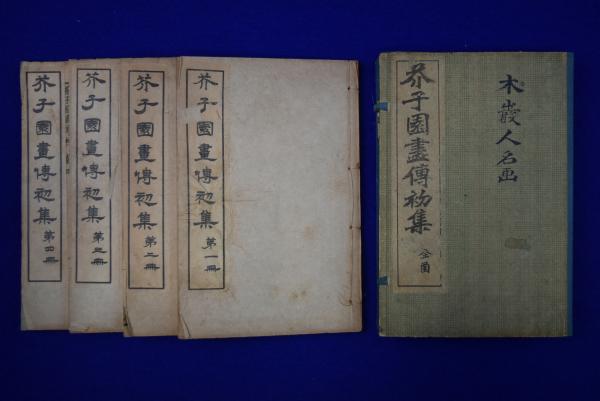 芥子園畫傳初集
第四冊
芥子園畫傳初集
第三冊
芥子園畫傳初集
第二冊
芥子園畫傳初集
第一冊
芥子園畫傳初集
全函
人名画